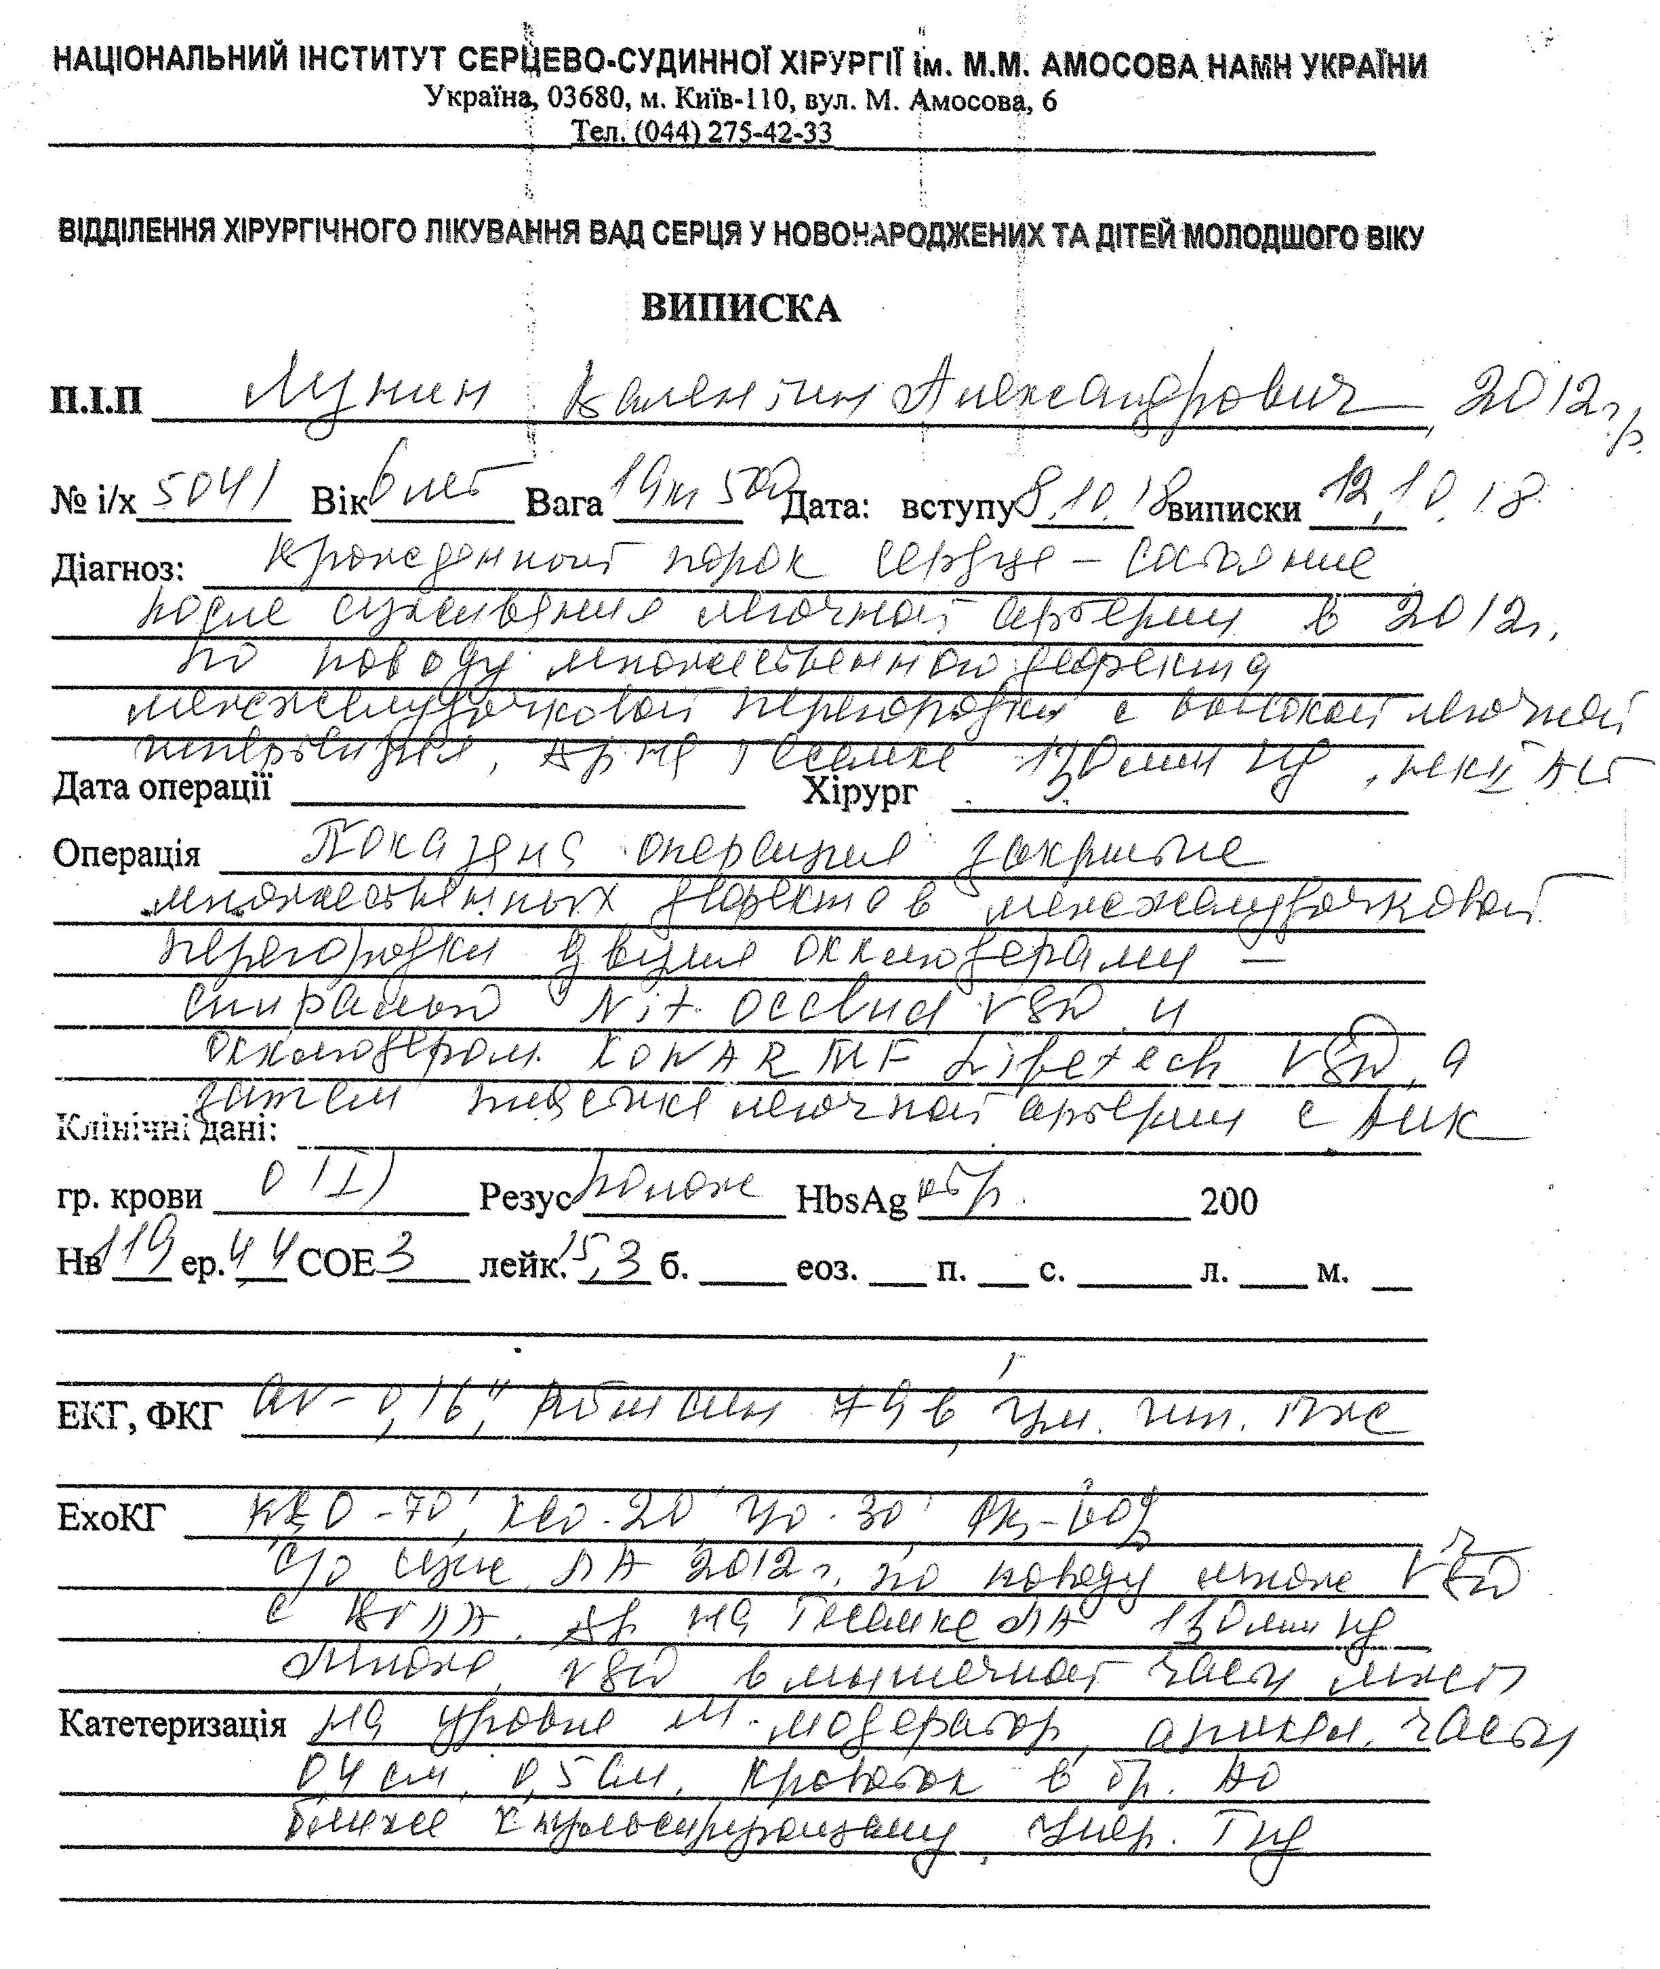 НАЦІОНАЛЬНИЙ ІНСТИТУТ СЕРЦЕВО-СУДИННОЇ ХІРУРГІЇ ім. М.М. АМОСОВА НАМН УКРАЇНИ
Україна, 03680, м. Київ-110, вул. М. Амосова, 6
Тел. (044) 275-42-33
ВІДДІЛЕННЯ ХІРУРГІЧНОГО ЛІКУВАННЯ ВАД СЕРЦЯ У НОВОНАРОДЖЕНИХ ТА ДІТЕЙ МОЛОДШОГО ВІКУ
ВИПИСКА
П.І.П Лунин Валентин Александрович, 2012 г.р.
№ і/х 5041 Вік 6 лет Вага 19кг 500 Дата: вступу 8.10.18 виписки 12.10.18
Діагноз: Врожденный порок сердца – состояние
после суживания легочной артерии в 2012г.
по поводу множественного дефекта
межжелудочковой перегородки с высокой легочной
гипертензией, Δр на тесьме 130 мм Hg,
Дата операції Хірург
Операція Показана операция закрытие
множественных дефектов межжелудочковой
перегородки двумя окклюдерами –
спиралью Nit-occlud VSD и
окклюдером KONAR MF Lifetech VSD, а
затем пластика легочной артерии с АИК
Клінічні дані:
гр. крови 0(I) Резус полож HbsAg отр. 200
Нв 119 ер. 4,4 СОЕ 3 лейк. 15,3 б. еоз. п. с. л. м.
ЕКГ, ФКГ av – 0,16", ритм син 79 в 1', гип. ПЖ
ЕхоКГ КДО - 70, КСО - 20, УО - 30, ФВ - 60%
С/о суж ЛА 2012г. по поводу множ VSD
с ВГЛА. Δр на тесьмке ЛА 130 мм Hg
Множ. VSD в мышечной части МЖП
Катетеризація на уровне м-модератор, апикал. части
0,4 см, 0,5 см. Кровоток в бр. Ао
ближе к пульсирующему,